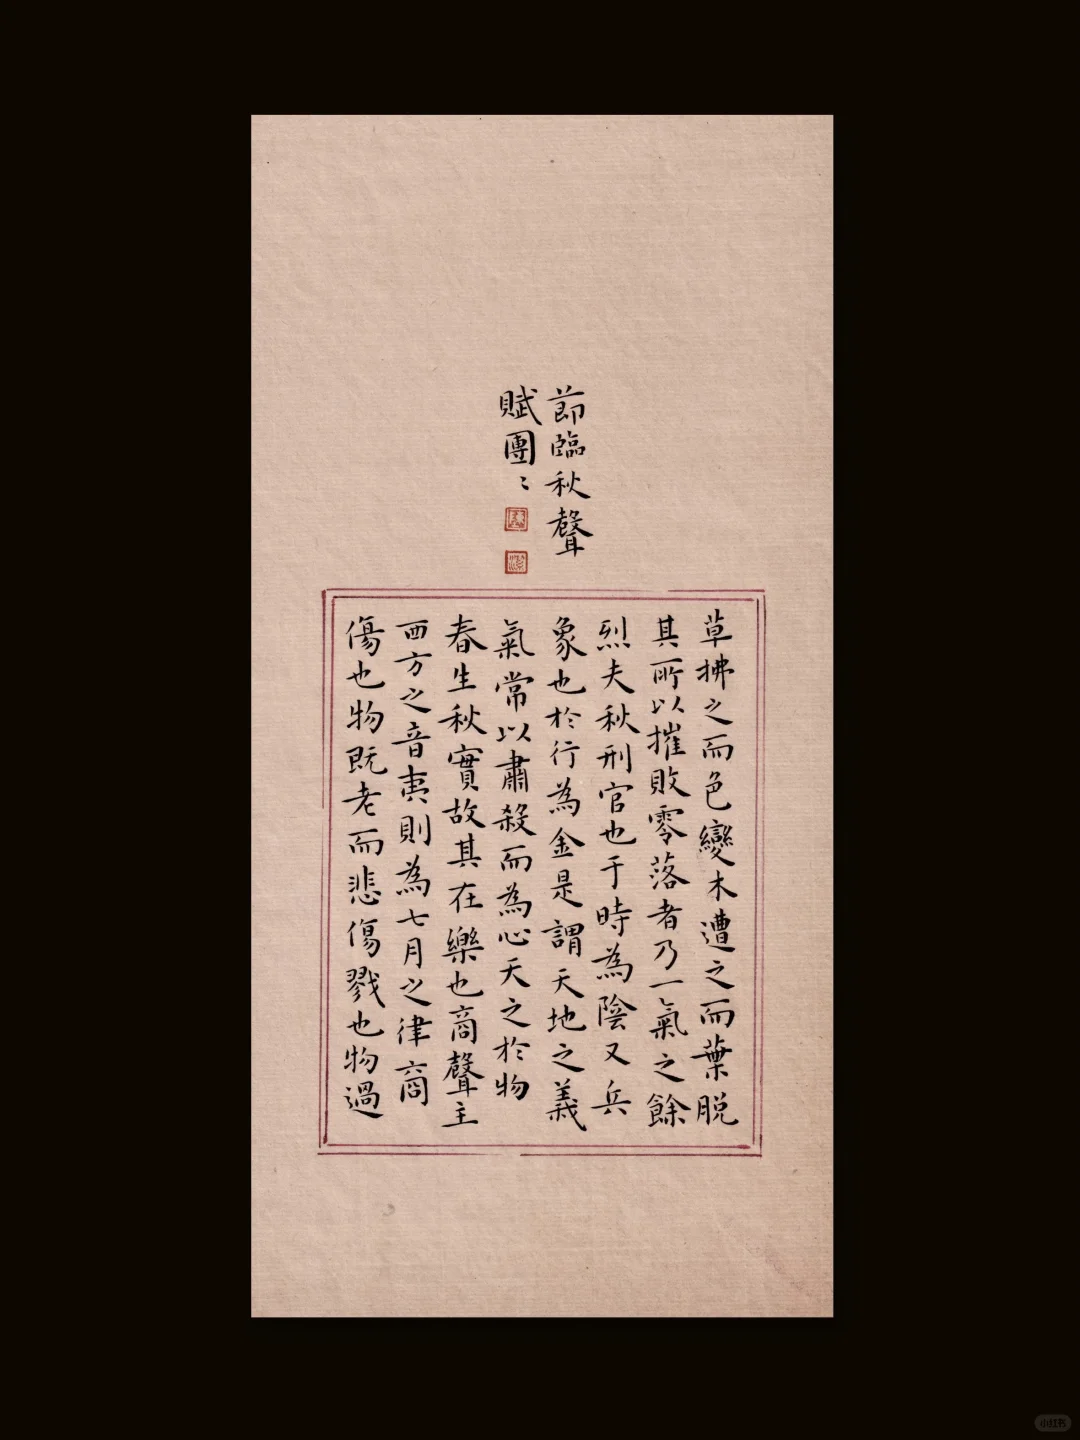 節臨秋聲
賦團〻
草拂之而色變木遭之而葉脫
其所以摧敗零落者乃一氣之餘
烈夫秋刑官也于時為陰又兵
象也於行為金是謂天地之義
氣常以肅殺而為心天之於物
春生秋實故其在樂也商聲主
西方之音夷則為七月之律商
傷也物既老而悲傷戮也物過
小红书